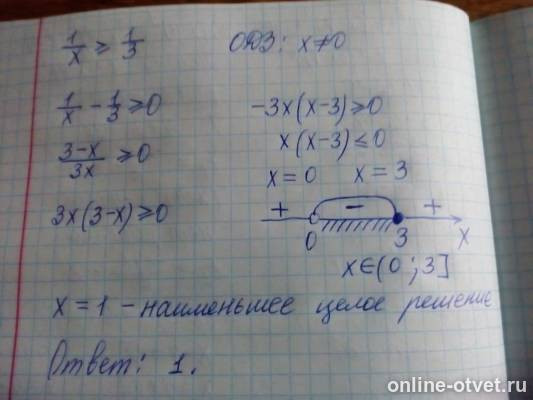 1/x ≥ 1/3
ОДЗ: x≠0
1/x - 1/3 ≥ 0
(3-x)/3x ≥ 0
3x(3-x) ≥ 0
-3x(x-3) ≥ 0
x(x-3) ≤ 0
x = 0 x = 3
+ - +
0 3 x
x∈(0 ; 3]
x = 1 - наименьшее целое решение
Ответ: 1.
online-otvet.ru